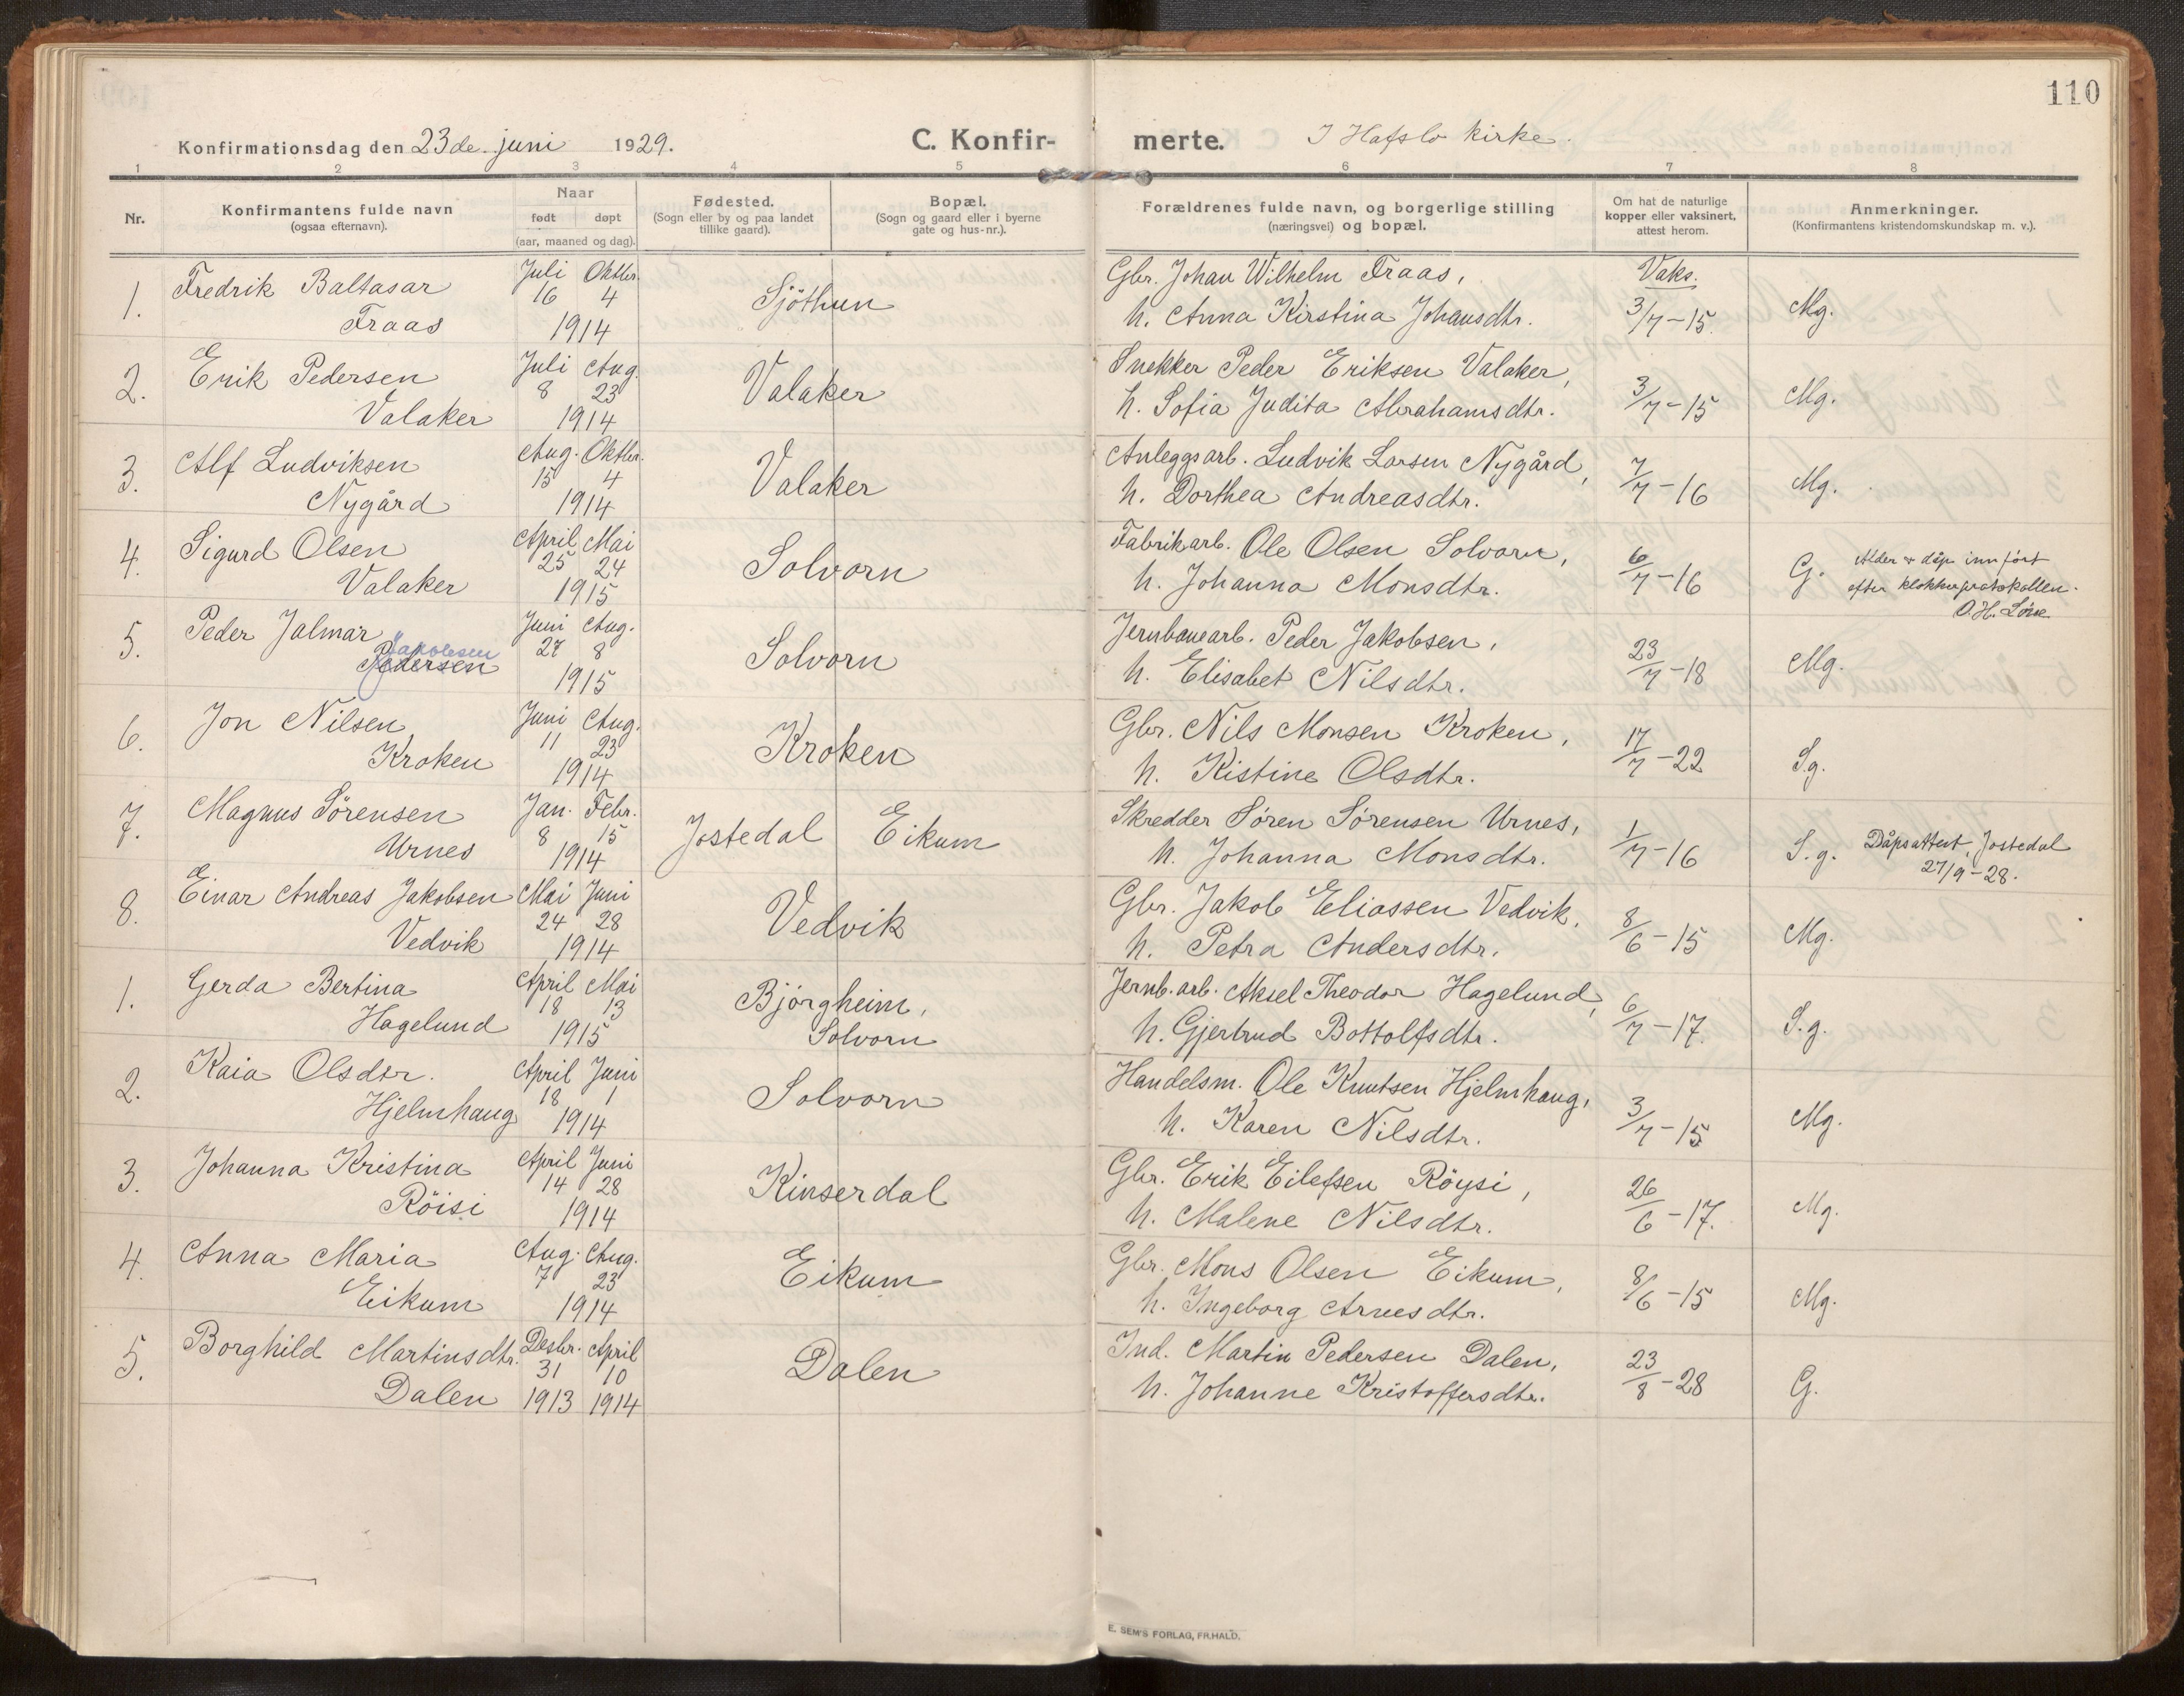 110
Konfirmationsdag den 23de juni 1929. C. Konfirmerte. I Hafslo kirke.
1 2 3 4 5 6 7 8
Nr. Konfirmantens fulde navn (ogsaa efternavn). Naar født døpt (aar, maaned og dag). Fødested. (Sogn eller by og paa landet tillike gaard). Bopæl. (Sogn og gaard eller i byerne gate og hus-nr.). Forældrenes fulde navn, og borgerlige stilling (næringsvei) og bopæl. Om hat de naturlige kopper eller vaksinert, attest herom. Anmerkninger. (Konfirmantens kristendomskundskap m. v.).
1. Fredrik Baltasar Juli 16 Oktbr. 4 Sjöthun Gbr. Johan Wilhelm Fraas, Vaks. 3/7-15. Mg.
Fraas 1914 h. Anna Kirstina Johansdtr.
2. Erik Pedersen Juli 8 Aug. 23 Valaker Snekker Peder Eriksen Valaker, 3/7-15 Mg.
Valaker 1914 h. Sofia Judita Abrahamsdtr.
3. Alf Ludviksen Aug. 15 Oktbr. 4 Valaker Anleggsarb. Ludvik Larsen Nygård, 7/7-16 Mg.
Nygård 1914 h. Dorthea Andreasdtr.
4. Sigurd Olsen April 25 Mai 24 Solvorn Fabrikarb. Ole Olsen Solvorn, 6/7-16 G. Alder & dåp innfört
Valaker 1915 h. Johanna Monsdtr. efter klokkerprotokollen.
O. H. Löne
5. Peder Jalmar Juni 27 Aug. 8 Solvorn Jernbanearb. Peder Jakobsen, 23/7-18 Mg.
Jakobsen
Pedersen 1915 h. Elisabet Nilsdtr.
6. Jon Nilsen Juni 11 Aug. 23 Kroken Gbr. Nils Monsen Kroken, 17/7-22 S.g.
Kroken 1914 h. Kistine Olsdtr.
7. Magnus Sörensen Jan. 8 Febr. 15 Jostedal Eikum Skredder Sören Sörensen Urnes, 1/7-16 S.g. Dåpsattest, Jostedal
Urnes 1914 h. Johanna Monsdtr. 27/9-28.
8. Einar Andreas Jakobsen Mai 24 Juni 28 Vedvik Gbr. Jakob Eliassen Vedvik, 8/6-15 Mg.
Vedvik 1914 h. Petra Andersdtr.
1. Gerda Bertina April 18 Mai 13 Bjørgheim, Jernb.arb. Aksel Theodor Hagelund, 6/7-17. S.g.
Hagelund 1915 Solvorn h. Gjertrud Bottolfsdtr.
2. Kaia Olsdtr. April 18 Juni 1 Solvorn Handelsm. Ole Knutsen Hjelmhaug, 3/7-15 Mg.
Hjelmhaug 1914 h. Karen Nilsdtr.
3. Johanna Kristina April 14 Juni 28 Kinserdal Gbr. Erik Eilefsen Röysi, 26/6-17. Mg.
Röisi 1914 h. Malene Nilsdtr.
4. Anna Maria Aug. 7 Aug. 23 Eikum Gbr. Mons Olsen Eikum, 8/6-15 Mg.
Eikum 1914 h. Ingeborg Arnesdtr.
5. Borghild Martinsdtr. Desbr. 31 April 10 Dalen Ind. Martin Pedersen Dalen, 23/8-28 G.
Dalen 1913 1914 h. Johanne Kristoffersdtr.
E. SEM'S FORLAG, FR.HALD.